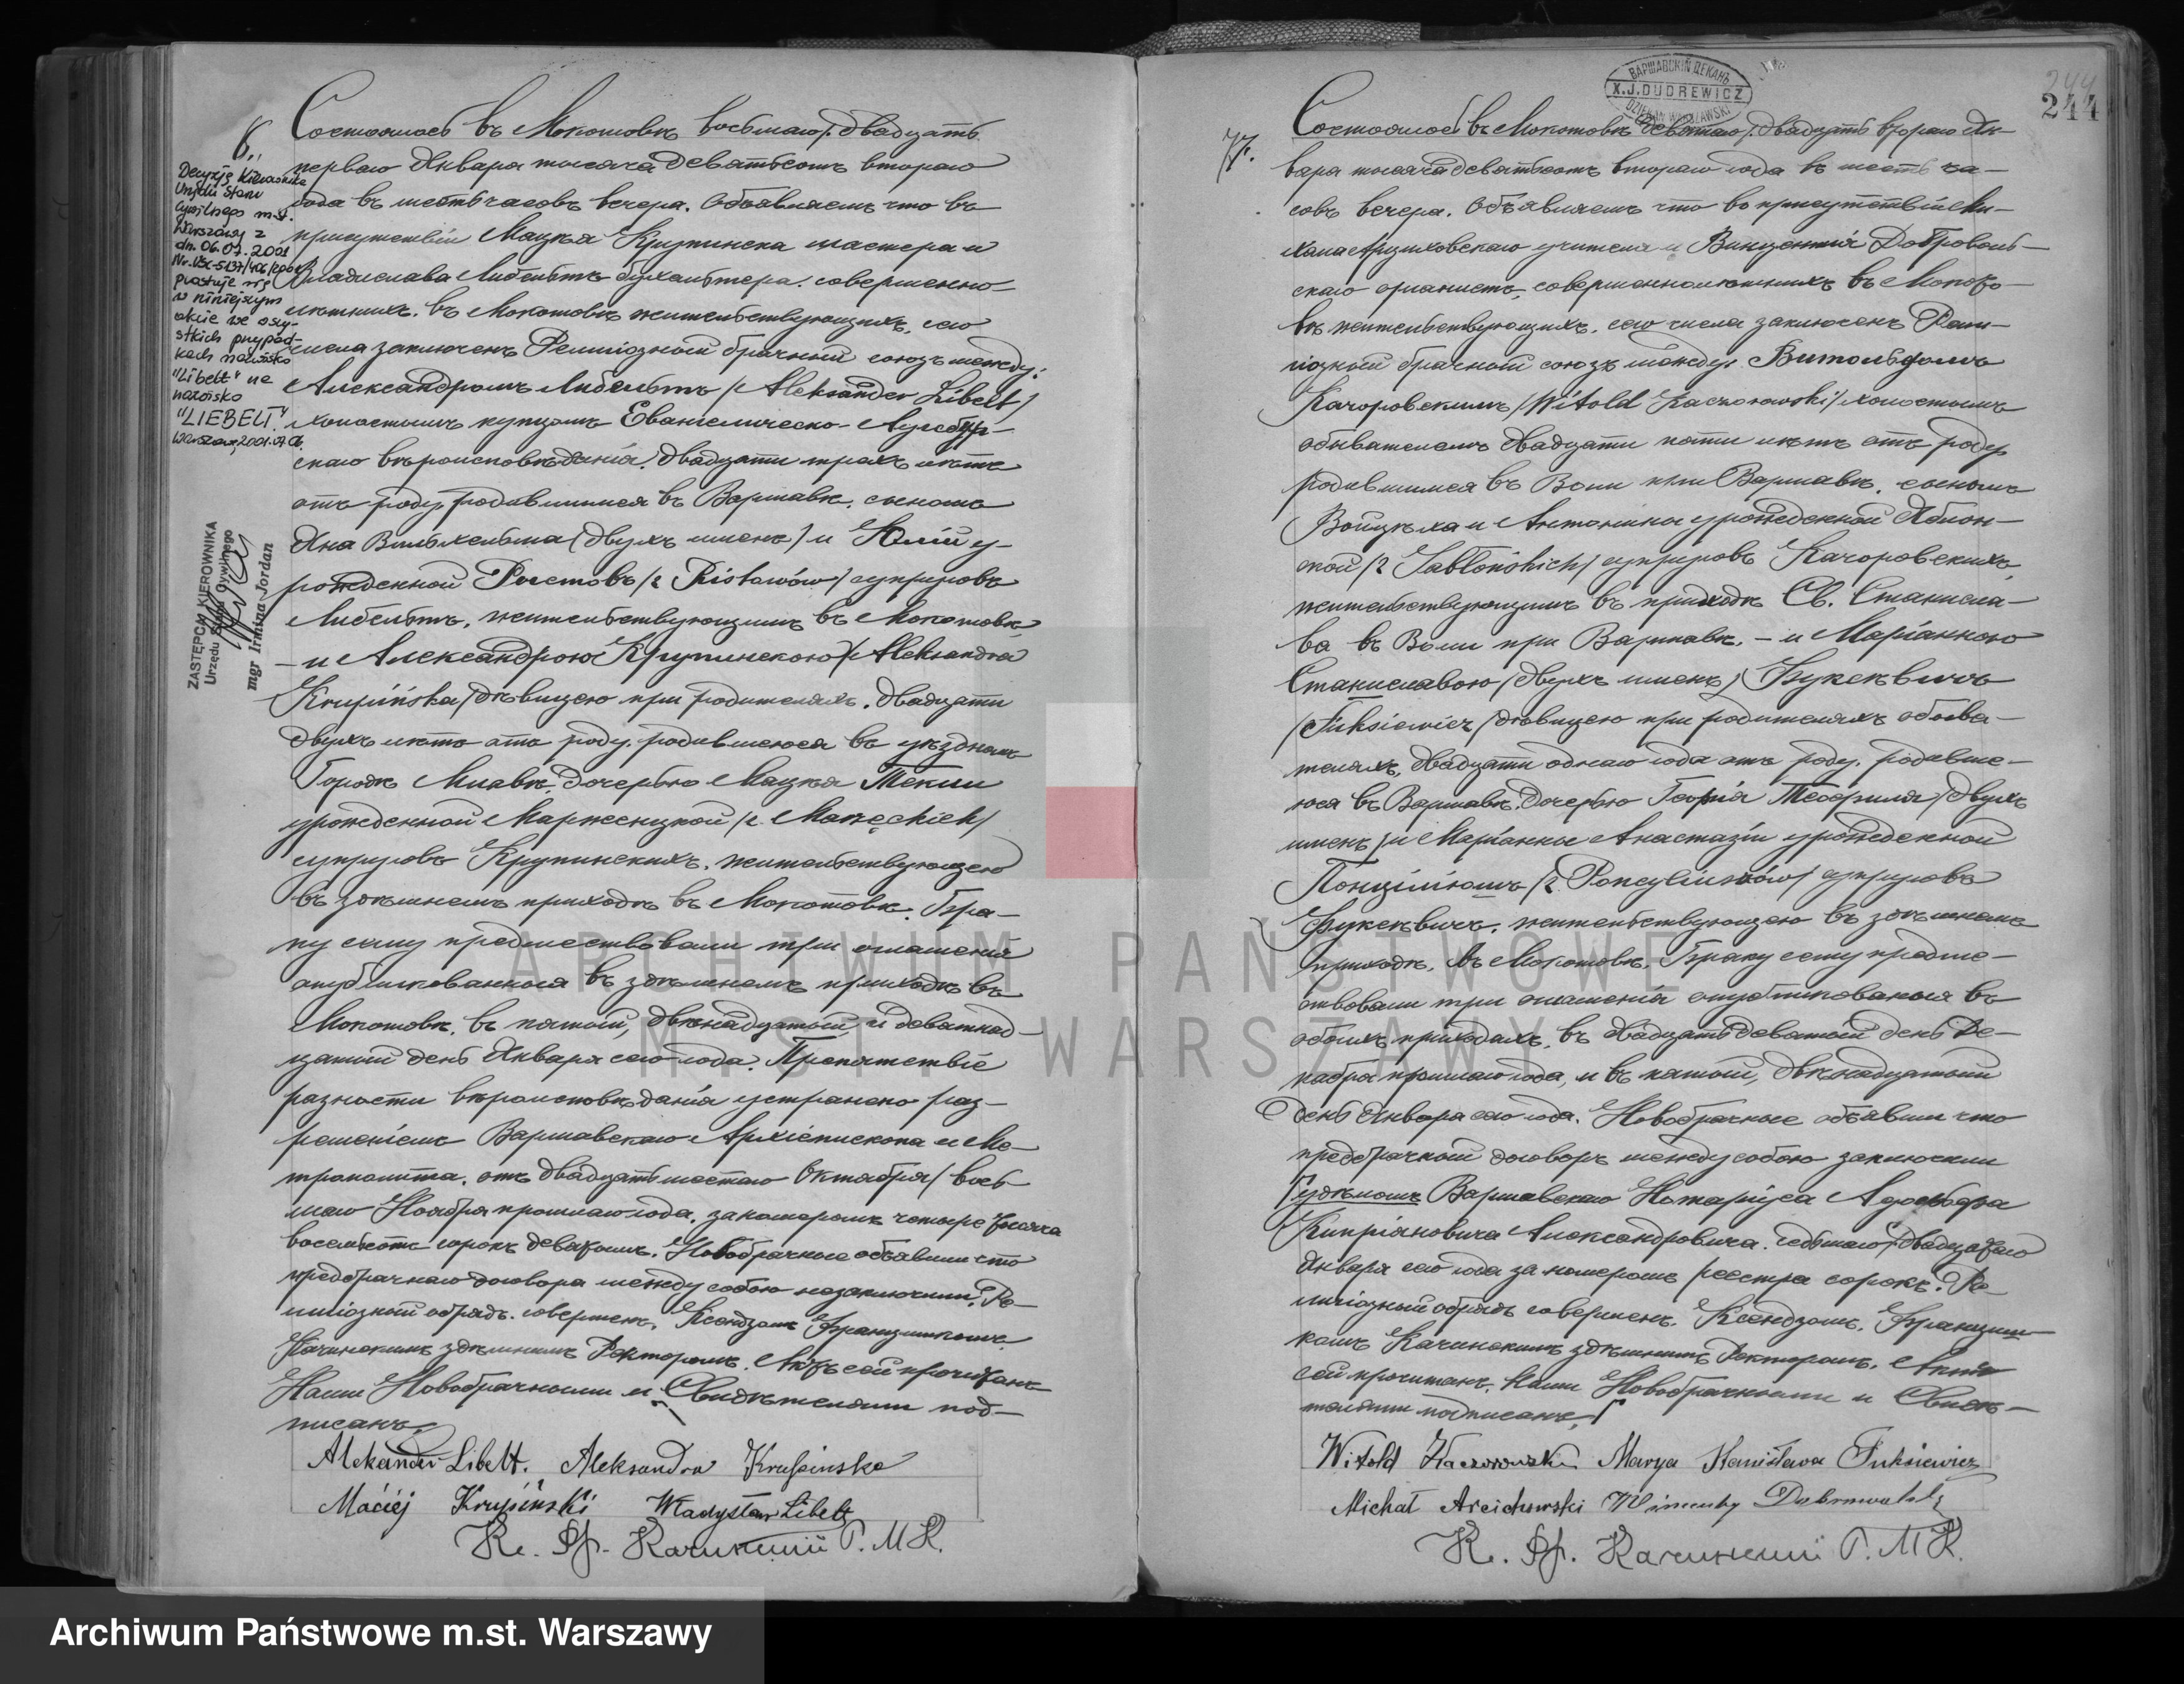 6.
Decyzją Kierownika
Urzędu Stanu
Cywilnego m.st.
Warszawy z
dn. 06.07.2001
prostuje się
w niniejszym
akcie we wszy-
stkich przypad-
kach nazwisko
"Libelt" na
nazwisko
"LIEBELT"
ZASTĘPCA KIEROWNIKA
Urzędu Stanu Cywilnego
mgr Irmina Jordan
Состоялось въ Мокотовѣ восьмаго/двадцать
перваго Января тысяча девятьсотъ втораго
года въ шесть часовъ вечера. Объявляемъ что въ
присутствіи Мацѣя Крупинска мастера и
Владислава Либельтъ бухгальтера, совершенно-
лѣтнихъ, въ Мокотовѣ жительствующихъ, сего
числа заключенъ Религіозный брачный союзъ между:
Александромъ Либельтъ /Aleksander Libelt/
холостымъ купцомъ Евангелическо-Аугсбур-
скаго вѣроисповѣданія, двадцати трехъ лѣтъ
отъ роду, родившимся въ Варшавѣ, сыномъ
Яна Вильхельма /двухъ именъ/ и Юліи у-
рожденной Ристовъ /z Ristowów/ супруговъ
Либельтъ, жительствующимъ въ Мокотовѣ
– и Александрою Крупинскою /Aleksandra
Krupińska/ дѣвицею при родителяхъ, двадцати
двухъ лѣтъ отъ роду, родившеюся въ уѣздномъ
Городѣ Млавѣ, дочерью Мацѣя Текли
урожденной Марженцкой /z Marzęckich/
супруговъ Крупинскихъ, жительствующею
въ здѣшнемъ приходѣ въ Мокотовѣ. Бра-
ку сему предшествовали три оглашенія
опубликованныя въ здѣшнемъ приходѣ въ
Мокотовѣ, въ пятый, двѣнадцатый и девятнад-
цатый день Января сего года. Препятствіе
разности вѣроисповѣданія устранено раз-
рѣшеніемъ Варшавскаго Архіепископа и Ми-
трополита, отъ двадцать шестаго Октября/вось-
маго Ноября прошлаго года, за номеромъ четыре тысяча
восемьсотъ сорокъ девятымъ. Новобрачные объявили что
предбрачнаго договора между собою незаключили. Ре-
лигіозный обрядъ совершенъ, Ксендзомъ Францишкомъ
Качинскимъ здѣшнимъ Ректоромъ. Актъ сей прочитанъ
Нами Новобрачными и Свидѣтелями под-
писанъ.
Aleksander Libelt. Aleksandra Krupińska
Maciej Krupiński Władysław Libelt
Кс. Фр. Качинскій Р. М. К.
ВАРШАВСКІЙ ДЕКАНЪ
X.J.DUDREWICZ
DZIEKAN WARSZAWSKI
244
244
7.
Состоялось въ Мокотовѣ девятаго/двадцать втораго Ян-
варя тысяча девятьсотъ втораго года въ шесть ча-
совъ вечера. Объявляемъ что въ присутствіи Ми-
хала Арциховскаго учителя и Винцентія Добровольс-
скаго органиста, совершеннолѣтнихъ въ Мокото-
вѣ жительствующихъ, сего числа заключенъ Рели-
гіозный брачный союзъ между: Витольдомъ
Качоровскимъ /Witold Kaczorowski/ холостымъ
обывателемъ двадцати пяти лѣтъ отъ роду
родившимся въ Воли при Варшавѣ, сыномъ
Войцѣха и Антонины урожденной Яблон-
ской /z Jabłońskich/ супруговъ Качоровскихъ,
жительствующимъ въ приходѣ Св. Станисла-
ва въ Воли при Варшавѣ, – и Маріанною
Станиславою /двухъ именъ/ Фуксѣвичъ
/Fuksiewicz/ дѣвицею при родителяхъ обыва-
теляхъ, двадцати одного года отъ роду, родивше-
юся въ Варшавѣ, дочерью Георгія Теофиля /двухъ
именъ/ и Маріанны Анастазіи урожденной
Понциліюшъ /z Poncyliuszów/ супруговъ
Фуксѣвичъ, жительствующею въ здѣшнемъ
приходѣ, въ Мокотовѣ. Браку сему предше-
ствовали три оглашенія опубликованыя въ
обоихъ приходахъ, въ двадцать девятый день Де-
кабря прошлаго года, и въ пятый, двѣнадцатый
день Января сего года. Новобрачные объявили что
предбрачный договоръ между собою заключили
у Варшавскаго Нотаріуса Адольфа
Кипріановича Александровича, седьмаго/двадцатаго
Января сего года за номеромъ реестра сорокъ. Ре-
лигіозный обрядъ совершенъ, Ксендзомъ, Францишь-
комъ Качинскимъ здѣшнимъ Ректоромъ. Актъ
сей прочитанъ, Нами Новобрачными и Свидѣ-
телями подписанъ.
Witold Kaczorowski Marya Stanisława Fuksiewicz
Michał Arcichowski Wincenty Dobrowolski
Кс. Фр. Качинскій Р. М. К.
ARCHIWUM PAŃSTWOWE
M.ST. WARSZAWY
Archiwum Państwowe m.st. Warszawy